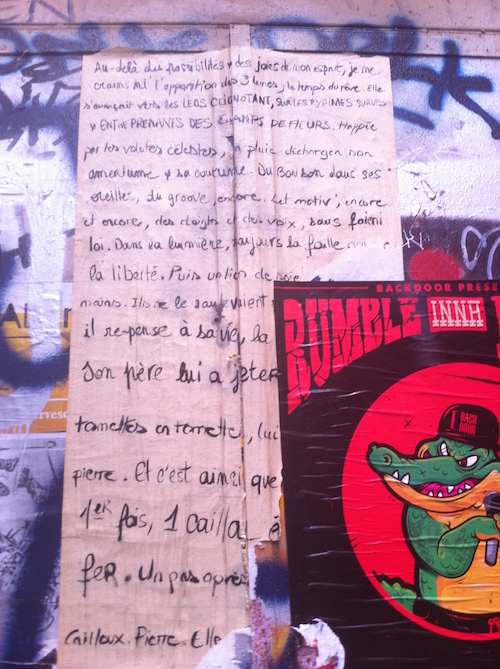 Au-delà des possibilités & des joies de mon esprit, je ne
crains ni l'apparition des 3 lunes, le temps du rêve. Elle
s'avançait vers les LEDS CLIGNOTANT, SUR LES RYTHMES SUAVES
& ENTREPRENANTS DES CHAMPS DE FLEURS. Happée
par les volutes célestes, la pluie décharger son
amertume & sa courume. Du bon son dans ses
oreilles, du groove, encore. Let motiv', encore
et encore, des doigts et des voix, sans foi ni
loi. Dans la lumière, toujours la faille
la liberté. Puis un lien de soie
mains. Ils ne le savent
il repense à sa vie, la
Son père lui a jeter
tomettes en terrette, lui
pierre. Et c'est ainsi que
1ER fois, 1 cailla
FER. Un pas après
Cailloux. Pierre. Elle
BACKDOOR PRESE
RUMBLE INNA
BACK
DOOR